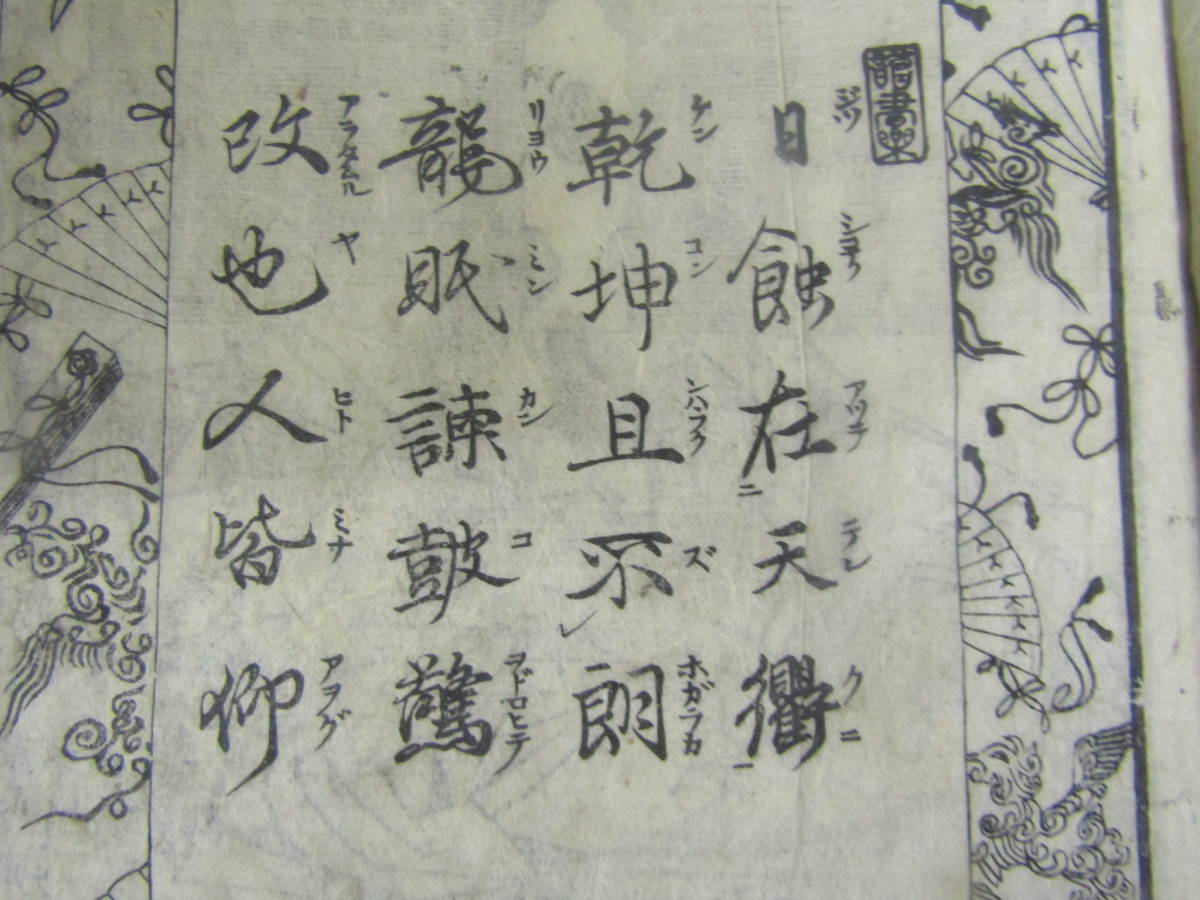 日蝕在天衢
ジツ シヨク アツテ テン クニ
二 一
乾坤且不朗
ケン コン ズ ホガラカ
レ
龍眠諫鼓驚
リヨウ ミン カン コ ヲドロヒテ
改也人皆仰
アラタムル ヤ ヒト ミナ アヲグ